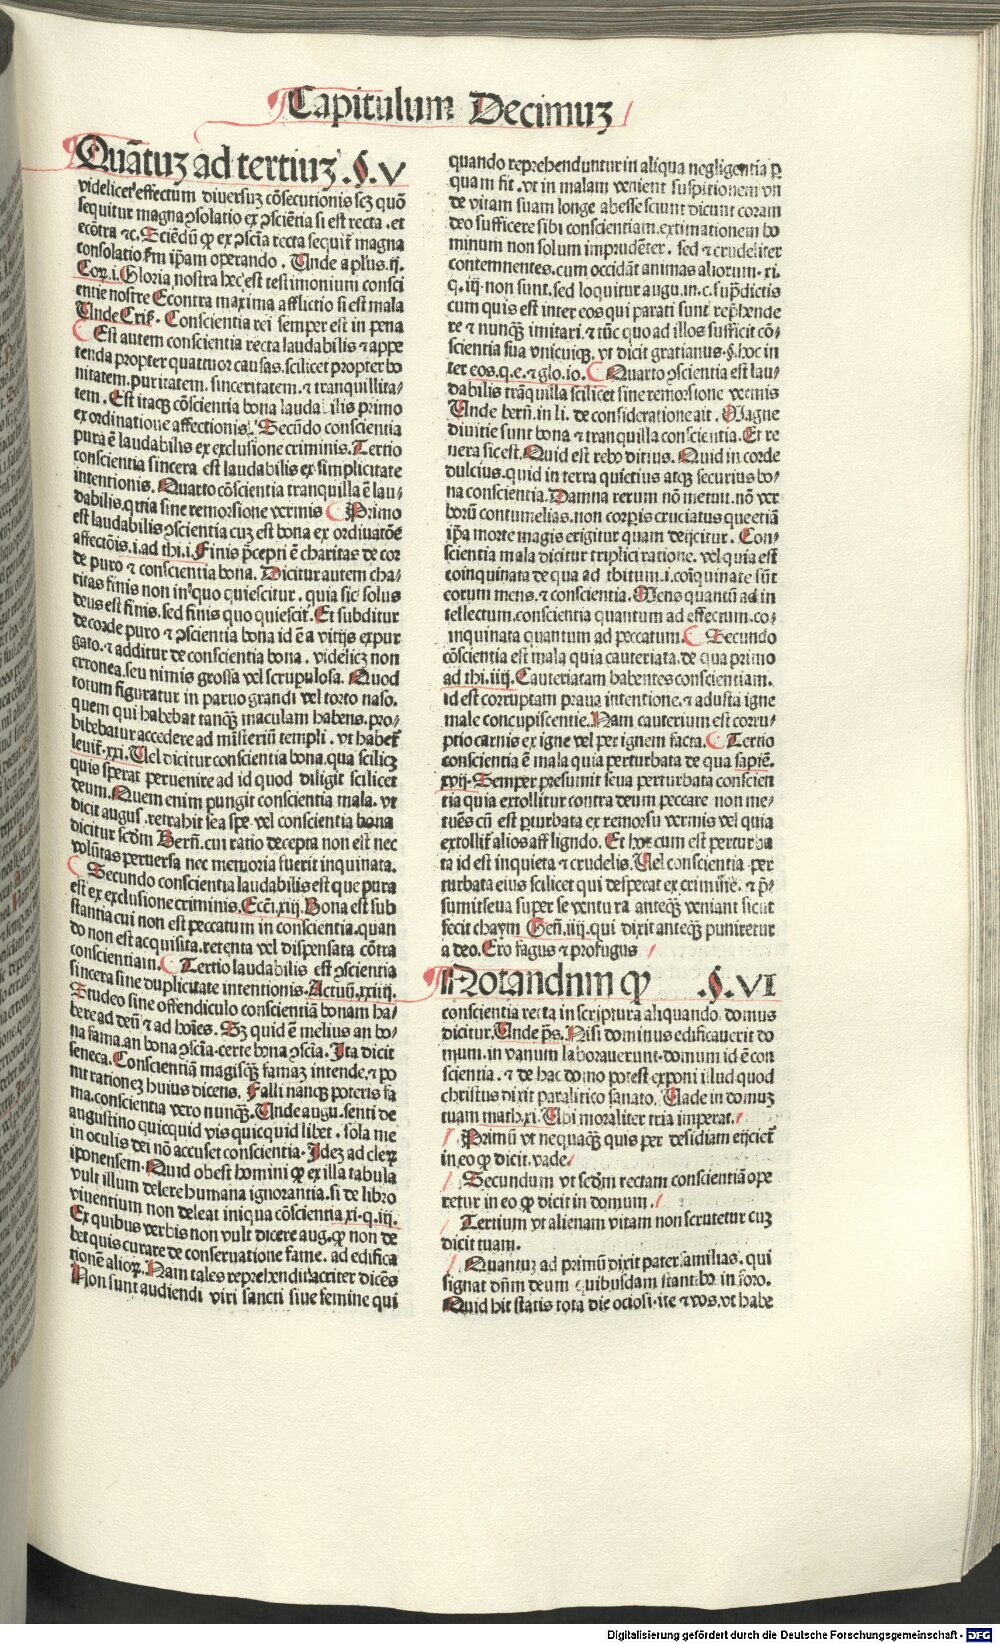 Capitulum Decimuʒ
Quãtuʒ ad tertiuʒ .§. V
videlicet effectum diuersuʒ cõsecutionis scʒ quõ
sequitur magna ꝯsolatio ex ꝯsciẽtia si est recta . et
ecõtra ⁊c. Sciẽdũ ꝙ ex ꝯscĩa recta sequit̃ magna
consolatio fm ip̃am operando . Unde aplus .ij.
Cor. i. Gloria nostra hec est testimonium consci
entie nostre Econtra maxima afflictio si est mala
Unde Cris̃ . Conscientia rei semper est in pena
Est autem conscientia recta laudabilis ⁊ appe
tenda propter quattuor causas. scilicet propter bo
nitatem. puritatem. sinceritatem. ⁊ tranquillita⸗
tem . Est itaqʒ cõscientia bona laudabilis primo
ex ordinatione affectionis. Secũdo conscientia
pura ẽ laudabilis ex exclusione criminis. Tertio
conscientia sincera est laudabilis ex simplicitate
intentionis. Quarto cõscientia tranquilla ẽ lau⸗
dabilis. quia sine remorsione vermis Primo
est laudabilis ꝯscientia cuʒ est bona ex ordinatõe
affectõis. i. ad thi. i. Finis p̃cepti ẽ charitas de cor
de puro ⁊ conscientia bona. Dicitur autem cha⸗
ritas finis non in quo quiescitur . quia sic solus
deus est finis. sed finis quo quiescit. Et subditur
de corde puro ⁊ ꝯscientia bona id ẽ a vitijs expur
gato. ⁊ additur de conscientia bona . videlicʒ non
erronea. seu nimis grossa vel scrupulosa. Quod
totum figuratur in paruo grandi vel torto naso.
quem qui habebat tanqʒ maculam habens. pro⸗
hibebatur accedere ad misteriũ templi . vt habet̃
leuit̃. xxi. Uel dicitur conscientia bona. qua scilicʒ
quis sperat peruenire ad id quod diligit scilicet
deum. Quem enim pungit conscientia mala. vt
dicit augus̃. retrahit sea spe. vel conscientia bona
dicitur scd̃m Bern̄. cui ratio decepta non est nec
volũtas peruersa nec memoria fuerit inquinata.
Secundo conscientia laudabilis est que pura
est ex exclusione criminis. Eccĩ. xiij. Bona est sub
stantia cui non est peccatum in conscientia. quan
do non est acquisita. retenta vel dispensata cõtra
conscientiam. Tertio laudabilis est ꝯscientia
sincera sine duplicitate intentionis. Actuũ. xxiiij.
Studeo sine offendiculo conscientiã bonam ha⸗
bere ad deũ ⁊ ad hoĩes. Sʒ quid ẽ melius an bo⸗
na fama. an bona ꝯscĩa. certe bona ꝯscĩa. Ita dicit
seneca. Conscientiã magisqʒ famaʒ intende. ⁊ po
nit rationeʒ huius dicens. Falli nanqʒ poteris fa
ma. conscientia vero nunqʒ. Unde augu. senti de
augustino quicquid vis quicquid libet . sola me
in oculis dei nõ accuset conscientia. Ideʒ ad cleꝝ
iponensem. Quid obest homini ꝙ ex illa tabula
vult illum delere humana ignorantia. si de libro
viuentium non deleat iniqua cõscientia xi. q. iij.
Ex quibus verbis non vult dicere aug. ꝙ non de
bet quis curare de conseruatione fame. ad edifica
tionẽ alioꝝ. Nam tales reprehendit acriter dicẽs
Non sunt audiendi viri sancti siue femine qui
quando reprehenduntur in aliqua negligentia ꝑ
quam fit. vt in malam venient suspitionem vn
de vitam suam longe abesse sciunt dicunt coram
deo sufficere sibi conscientiam. extimationem ho
minum non solum imprudẽter. sed ⁊ crudeliter
contemnentes. cum occidãt animas aliorum. xi.
q. iij. non sunt. sed loquitur augu. in. c. sup̃dictis
cum quis est inter eos qui parati sunt rep̃hende
re ⁊ nunqʒ imitari. ⁊ tũc quo ad illos sufficit cõ⸗
scientia sua vnicuiqʒ. vt dicit gratianus. §. hoc in
ter eos. q. e. ⁊ glo. io. Quarto ꝯscientia est lau⸗
dabilis trãquilla scilicet sine remorsione vermis
Unde bern̄. in li. de consideratione ait. Magne
diuitie sunt bona ⁊ tranquilla conscientia. Et re
uera sic est. Quid est rebꝰ ditius. Quid in corde
dulcius. quid in terra quietius atqʒ securius bo⸗
na conscientia. Damna rerum nõ metuit. nõ ver
borũ contumelias. non corꝑis cruciatus que etiã
ip̃a morte magis erigitur quam deijcitur. Con⸗
scientia mala dicitur triplici ratione. vel quia est
coinquinata de qua ad thitum. i. coĩquinate sũt
eorum mens. ⁊ conscientia. Mens quantũ ad in
tellectum. conscientia quantum ad effectum. co⸗
inquinata quantum ad peccatum. Secundo
cõscientia est mala quia cauteriata. de qua primo
ad thi. iiij. Cauteriatam habentes conscientiam.
id est corruptam praua intentione. ⁊ adusta igne
male concupiscentie. Nam cauterium est corru⸗
ptio carnis ex igne vel per ignem facta. Tertio
conscientia ẽ mala quia perturbata de qua sapiẽ.
xvij. Semper presumit seua perturbata conscien
tia quia extollitur contra deum peccare non me⸗
tuẽs cũ est ꝑturbata ex remorsu vermis vel quia
extollit̃ alios affligendo. Et hoc cum est perturba
ta id est inquieta ⁊ crudelis. Uel conscientia per
turbata eius scilicet qui desperat ex crimine. ⁊ p̃⸗
sumit seua super se ventura anteqʒ veniant sicut
fecit chaym Gen̄. iiij. qui dixit anteqʒ puniretur
a deo. Ero fagus ⁊ profugus
Notandum ꝙ .§. VI
conscientia recta in scriptura aliquando. domus
dicitur. Unde ps̃. Nisi dominus edificauerit do
mum. in vanum laborauerunt. domum id ẽ con
scientia. ⁊ de hac domo potest exponi illud quod
christus dixit paralitico sanato. Uade in domuʒ
tuam math. xi. Ubi moraliter tria imperat.
Primũ vt nequaqʒ quis per desidiam eijciet̃
in eo ꝙ dicit. vade
Secundum vt scd̃m rectam conscientiã ope
retur in eo ꝙ dicit in domum.
Tertium vt alienam vitam non scrutetur cuʒ
dicit tuam.
Quantuʒ ad primũ dixit pater familias. qui
signat dñm deum quibusdam stantibꝰ in foro.
Quid hic statis tota die ociosi. ite ⁊ vos. vt habe
Digitalisierung gefördert durch die Deutsche Forschungsgemeinschaft - DFG